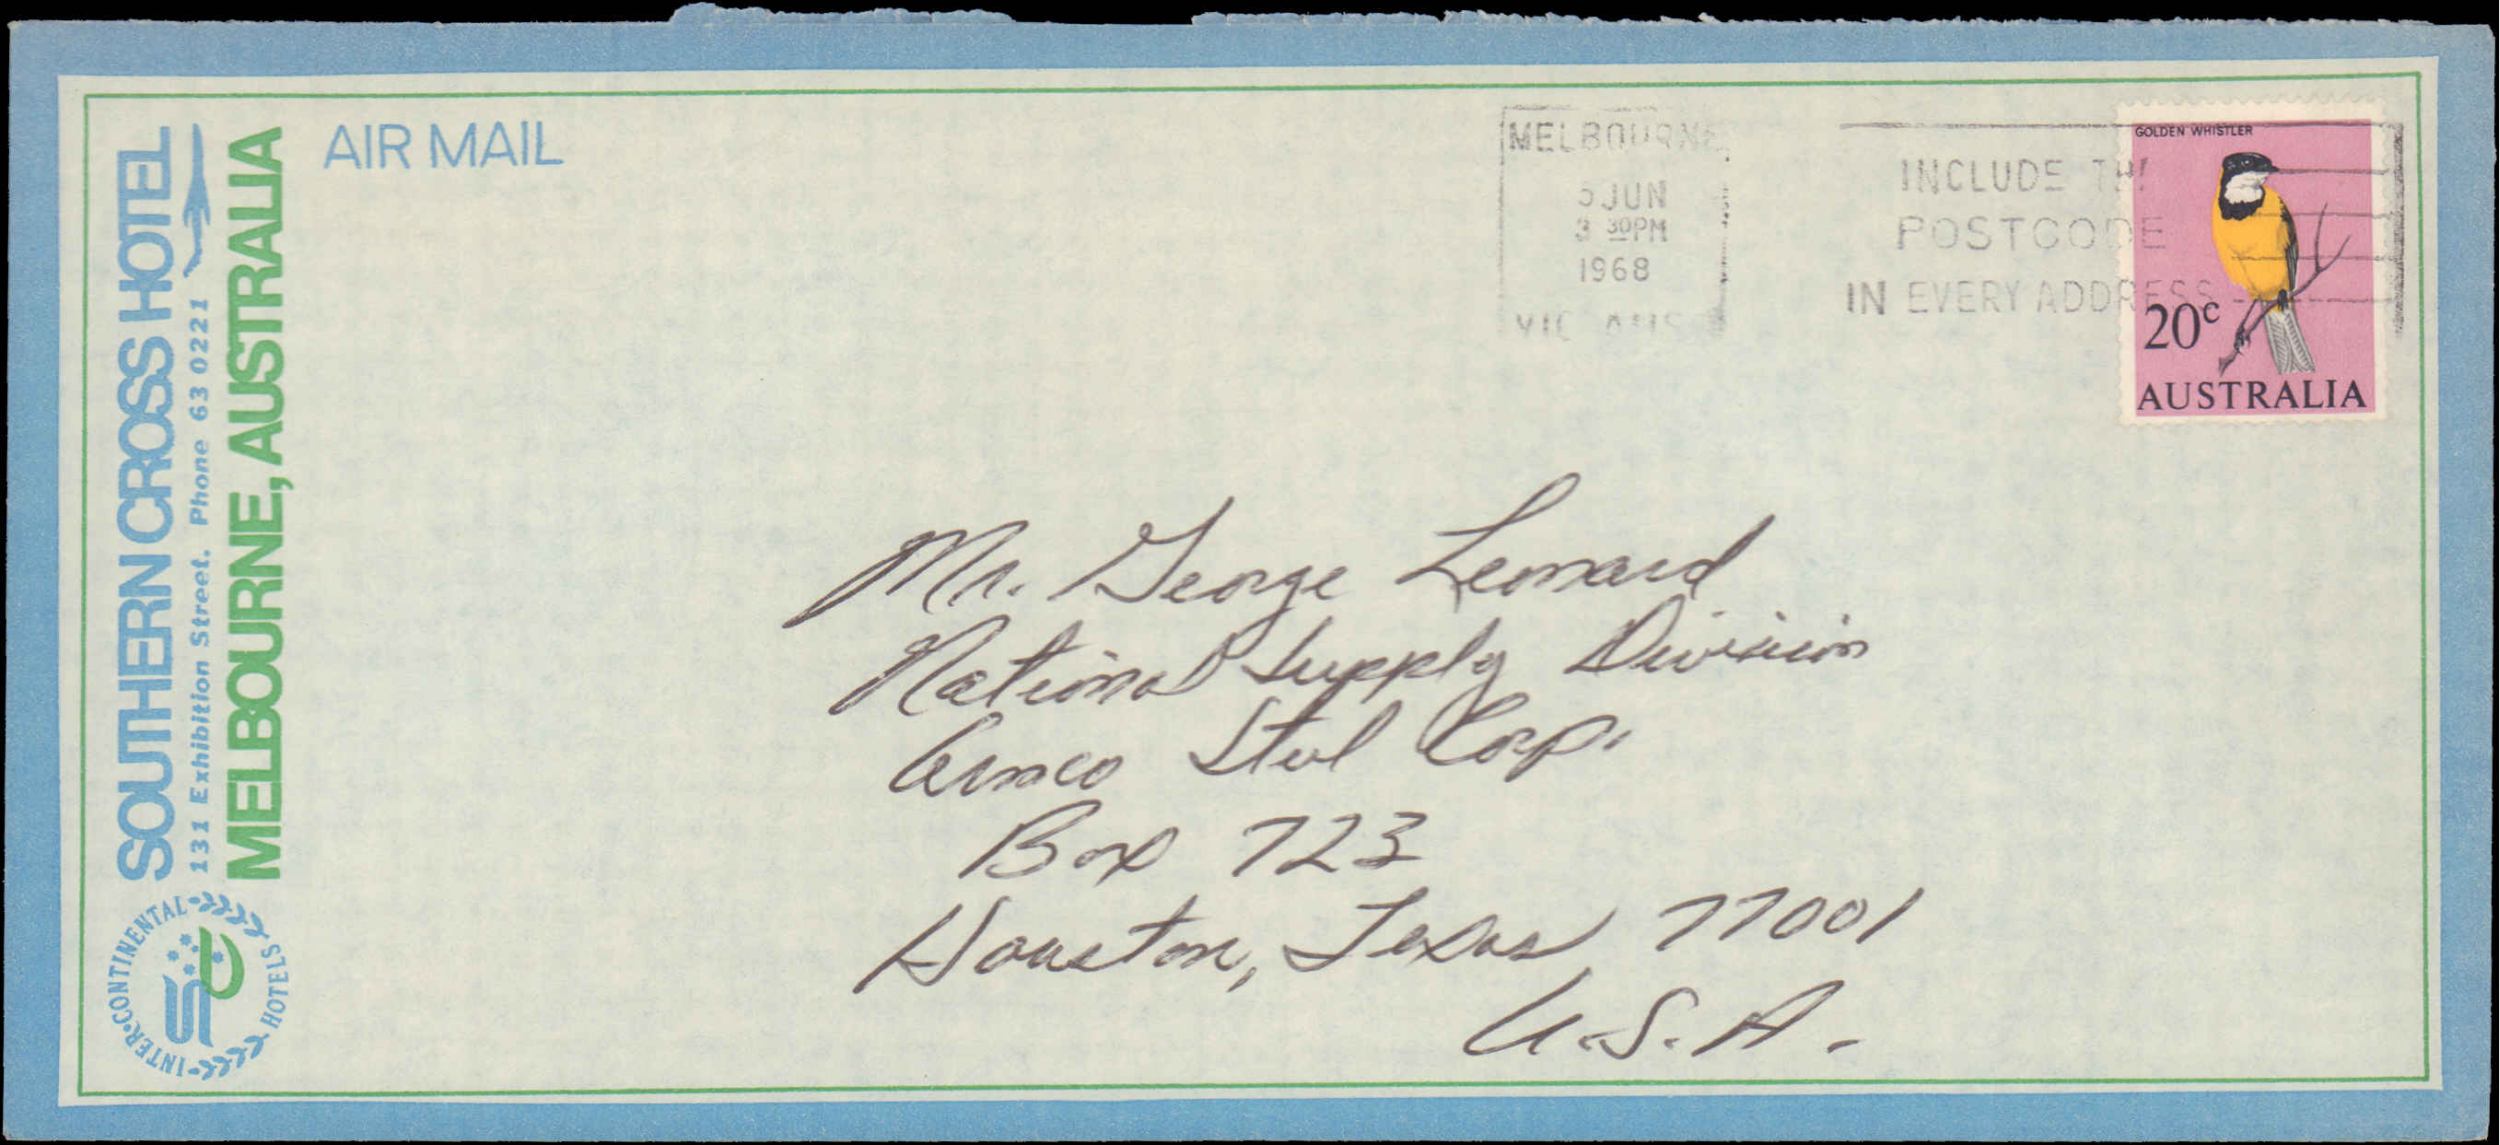 SOUTHERN CROSS HOTEL
131 Exhibition Street. Phone 63 0221
MELBOURNE, AUSTRALIA
INTER•CONTINENTAL HOTELS
AIR MAIL
MELBOURNE
5 JUN
3 30PM
1968
VIC AUST
INCLUDE THE
POSTCODE
IN EVERY ADDRESS
GOLDEN WHISTLER
20c
AUSTRALIA
Mr. George Leonard
National Supply Division
Armco Steel Corp.
Box 723
Houston, Texas 77001
U.S.A.